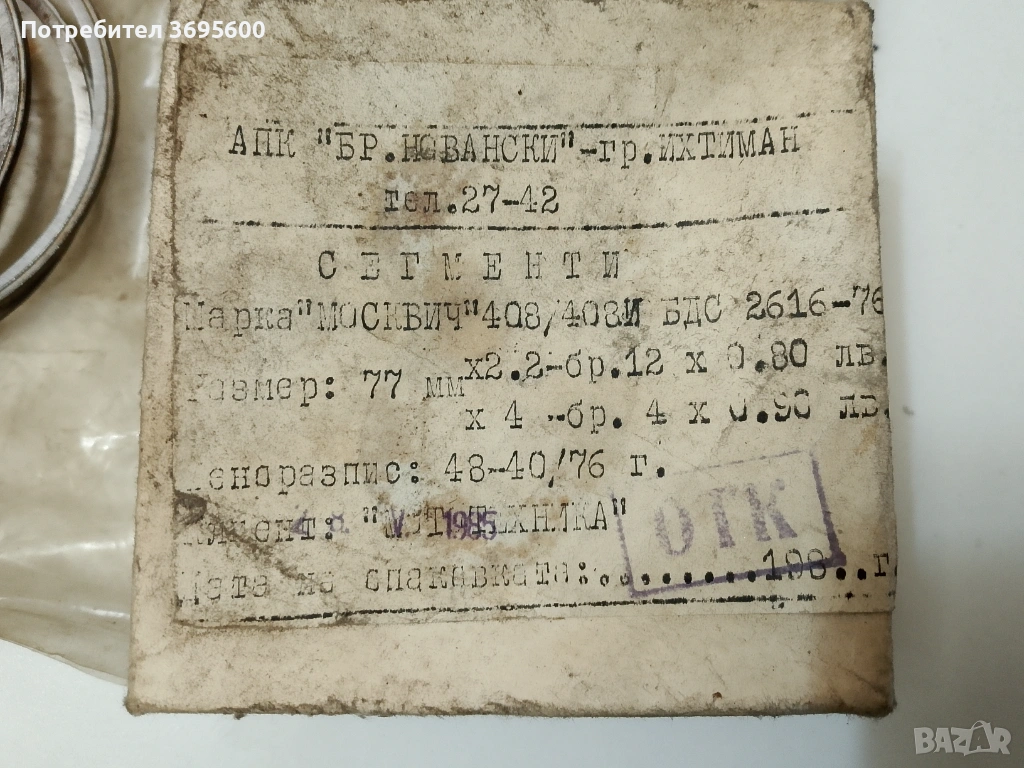 Потребител 3695600
АПК "БР.НОВАНСКИ"-гр.ИХТИМАН
тел.27-42
СЕГМЕНТИ
Марка"МОСКВИЧ"408/408И БДС 2616-76
Размер: 77 мм х2.2-бр.12 х 0.80 лв.
х 4 -бр. 4 х 0.90 лв.
Ценоразпис: 48-40/76 г.
Клиент: "МОТОТЕХНИКА"
8 V 1985
ОТК
Дата на опаковката:.........198..г.
BAZAR